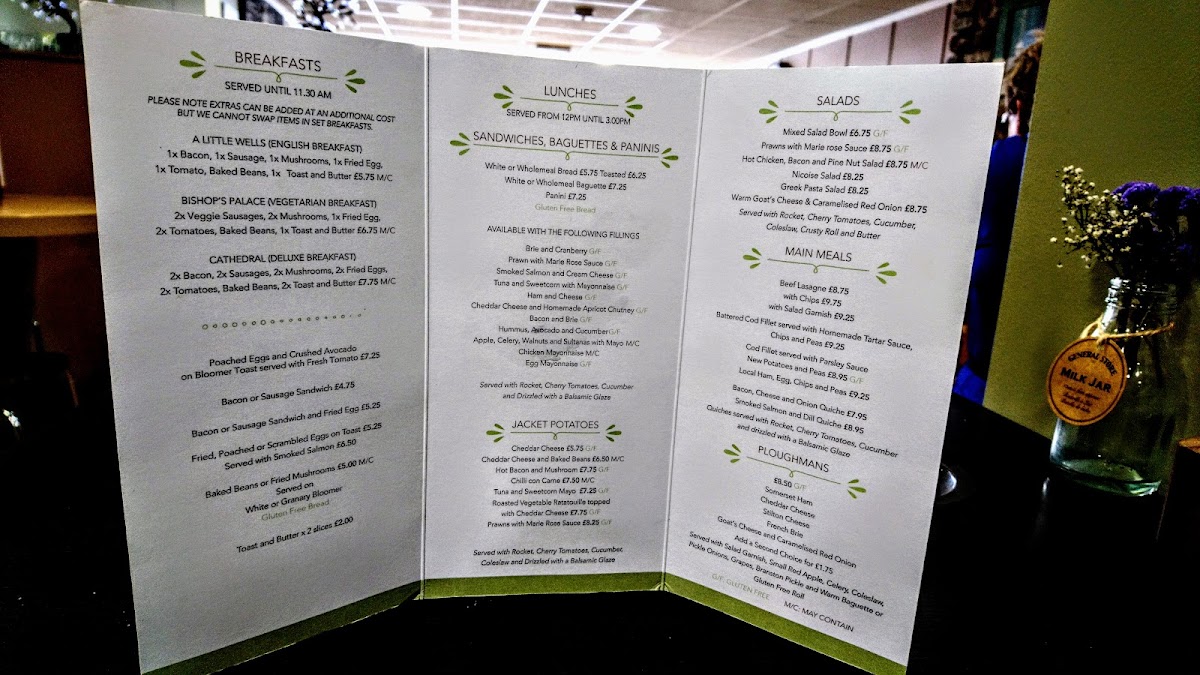 BREAKFASTS
SERVED UNTIL 11.30 AM
PLEASE NOTE EXTRAS CAN BE ADDED AT AN ADDITIONAL COST
BUT WE CANNOT SWAP ITEMS IN SET BREAKFASTS.
A LITTLE WELLS (ENGLISH BREAKFAST)
1x Bacon, 1x Sausage, 1x Mushrooms, 1x Fried Egg,
1x Tomato, Baked Beans, 1x Toast and Butter £5.75 M/C
BISHOP'S PALACE (VEGETARIAN BREAKFAST)
2x Veggie Sausages, 2x Mushrooms, 1x Fried Egg,
2x Tomatoes, Baked Beans, 1x Toast and Butter £6.75 M/C
CATHEDRAL (DELUXE BREAKFAST)
2x Bacon, 2x Sausages, 2x Mushrooms, 2x Fried Eggs,
2x Tomatoes, Baked Beans, 2x Toast and Butter £7.75 M/C
Poached Eggs and Crushed Avocado
on Bloomer Toast served with Fresh Tomato £7.25
Bacon or Sausage Sandwich £4.75
Bacon or Sausage Sandwich and Fried Egg £5.25
Fried, Poached or Scrambled Eggs on Toast £5.25
Served with Smoked Salmon £6.50
Baked Beans or Fried Mushrooms £5.00 M/C
Served on
White or Granary Bloomer
Gluten Free Bread
Toast and Butter x 2 slices £2.00
LUNCHES
SERVED FROM 12PM UNTIL 3.00PM
SANDWICHES, BAGUETTES & PANINIS
White or Wholemeal Bread £5.75 Toasted £6.25
White or Wholemeal Baguette £7.25
Panini £7.25
Gluten Free Bread
AVAILABLE WITH THE FOLLOWING FILLINGS
Brie and Cranberry G/F
Prawn with Marie Rose Sauce G/F
Smoked Salmon and Cream Cheese G/F
Tuna and Sweetcorn with Mayonnaise G/F
Ham and Cheese G/F
Cheddar Cheese and Homemade Apricot Chutney G/F
Bacon and Brie G/F
Hummus, Avocado and Cucumber G/F
Apple, Celery, Walnuts and Sultanas with Mayo M/C
Chicken Mayonnaise M/C
Egg Mayonnaise G/F
Served with Rocket, Cherry Tomatoes, Cucumber
and Drizzled with a Balsamic Glaze
JACKET POTATOES
Cheddar Cheese £5.75 G/F
Cheddar Cheese and Baked Beans £6.50 M/C
Hot Bacon and Mushroom £7.75 G/F
Chilli con Carne £7.50 M/C
Tuna and Sweetcorn Mayo £7.25 G/F
Roasted Vegetable Ratatouille topped
with Cheddar Cheese £7.75 G/F
Prawns with Marie Rose Sauce £8.25 G/F
Served with Rocket, Cherry Tomatoes, Cucumber,
Coleslaw and Drizzled with a Balsamic Glaze
SALADS
Mixed Salad Bowl £6.75 G/F
Prawns with Marie rose Sauce £8.75 G/F
Hot Chicken, Bacon and Pine Nut Salad £8.75 M/C
Nicoise Salad £8.25
Greek Pasta Salad £8.25
Warm Goat's Cheese & Caramelised Red Onion £8.75
Served with Rocket, Cherry Tomatoes, Cucumber,
Coleslaw, Crusty Roll and Butter
MAIN MEALS
Beef Lasagne £8.75
with Chips £9.75
with Salad Garnish £9.25
Battered Cod Fillet served with Homemade Tartar Sauce,
Chips and Peas £9.25
Cod Fillet served with Parsley Sauce
New Potatoes and Peas £8.95 G/F
Local Ham, Egg, Chips and Peas £9.25
Bacon, Cheese and Onion Quiche £7.95
Smoked Salmon and Dill Quiche £8.95
Quiches served with Rocket, Cherry Tomatoes, Cucumber
and drizzled with a Balsamic Glaze
PLOUGHMANS
£8.50 G/F
Somerset Ham
Cheddar Cheese
Stilton Cheese
French Brie
Goat's Cheese and Caramelised Red Onion
Add a Second Choice for £1.75
Served with Salad Garnish, Small Red Apple, Celery, Coleslaw,
Pickle Onions, Grapes, Branston Pickle and Warm Baguette or
Gluten Free Roll
G/F: GLUTEN FREE M/C: MAY CONTAIN
GENERAL STORE
MILK JAR